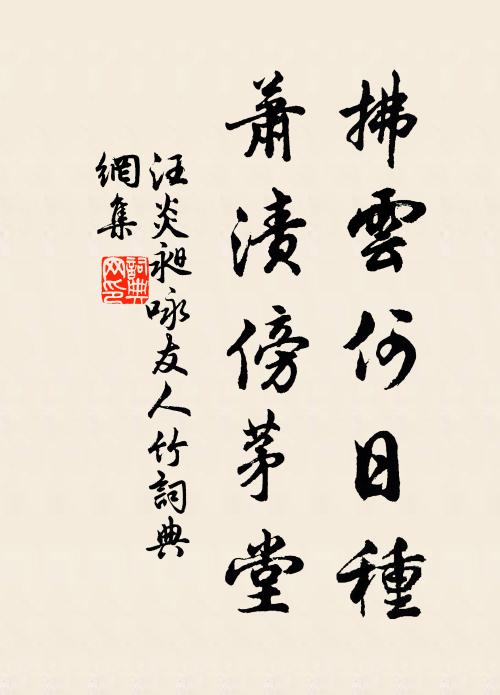 拂雲何日種
蕭漬傍茅堂
汪炎昶咏友人竹詞典
網集
詞典
网印